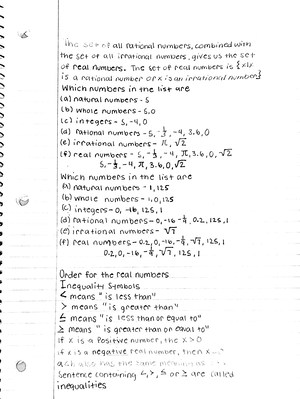 The set of all rational numbers, combined with
the set of all irrational numbers, gives us the set
of real numbers. The set of real numbers is {x|x
is a rational number or x is an irrational number}
Which numbers in the list are
(a) natural numbers - 5
(b) whole numbers - 5,0
(c) integers - 5, -4, 0
(d) rational numbers - 5, -1/3, -4, 3.6, 0
(e) irrational numbers - π, √2
(f) real numbers - 5, -1/3, -4, π, 3.6, 0, √2
5, -1/3, -4, π, 3.6, 0, √2
Which numbers in the list are
(a) natural numbers - 1, 125
(b) whole numbers - 1, 0, 125
(c) integers - 0, -16, 125, 1
(d) rational numbers - 0, -16, 0.2, 125, 1
(e) irrational numbers - √7
(f) real numbers - 0.2, 0, -16, √7, 125, 1
0.2, 0, -16, √7, 125, 1
Order for the real numbers
Inequality Symbols
< means "is less than"
> means "is greater than"
≤ means "is less than or equal to"
≥ means "is greater than or equal to"
If x is a Positive number, the x > 0
if x is a negative real number, then x
a<b also has the same meaning as
Sentence containing <, >, ≤ or ≥ are called
inequalities